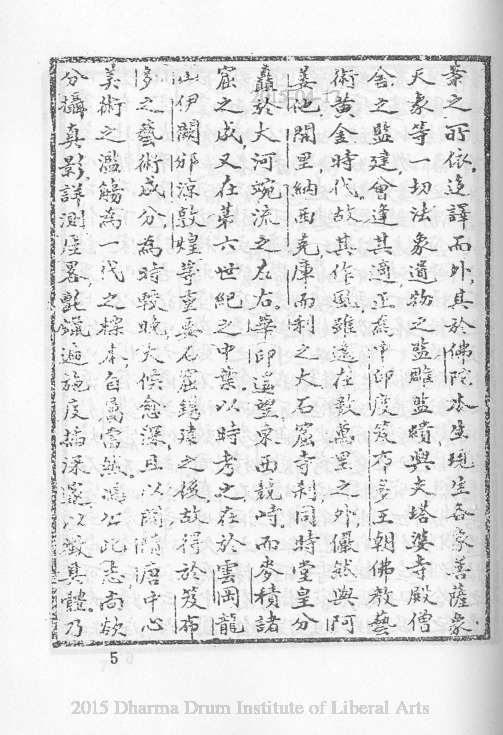 業之所依迻譯而外其於佛陀本生現生各象菩薩象
天象等一切法象遺物之監雕監繪與夫塔婆寺殿僧
舍之監建會逢其適正燕中印度笈布多王朝佛教藝
術黃金時代故其作風雖遠在數萬里之外儼然與阿
姜他開里納西克庫而利之大石窟寺剎同時堂皇分
矗於大河蜿流之左右華印遙望東西競峙而麥積諸
窟之成又在第六世紀之中葉以時考之在於雲岡龍
山伊闕邠涼敦煌等重要石窟鐫建之後故得於笈布
多之藝術成分為時較晚火候愈深且以開隋唐中心
美術之濫觴為一代之標本自屬當然馮公此志尚欲
分攝真影詳測座署氈蠟遍施度描深邃以徵具體乃
5
2015 Dharma Drum Institute of Liberal Arts